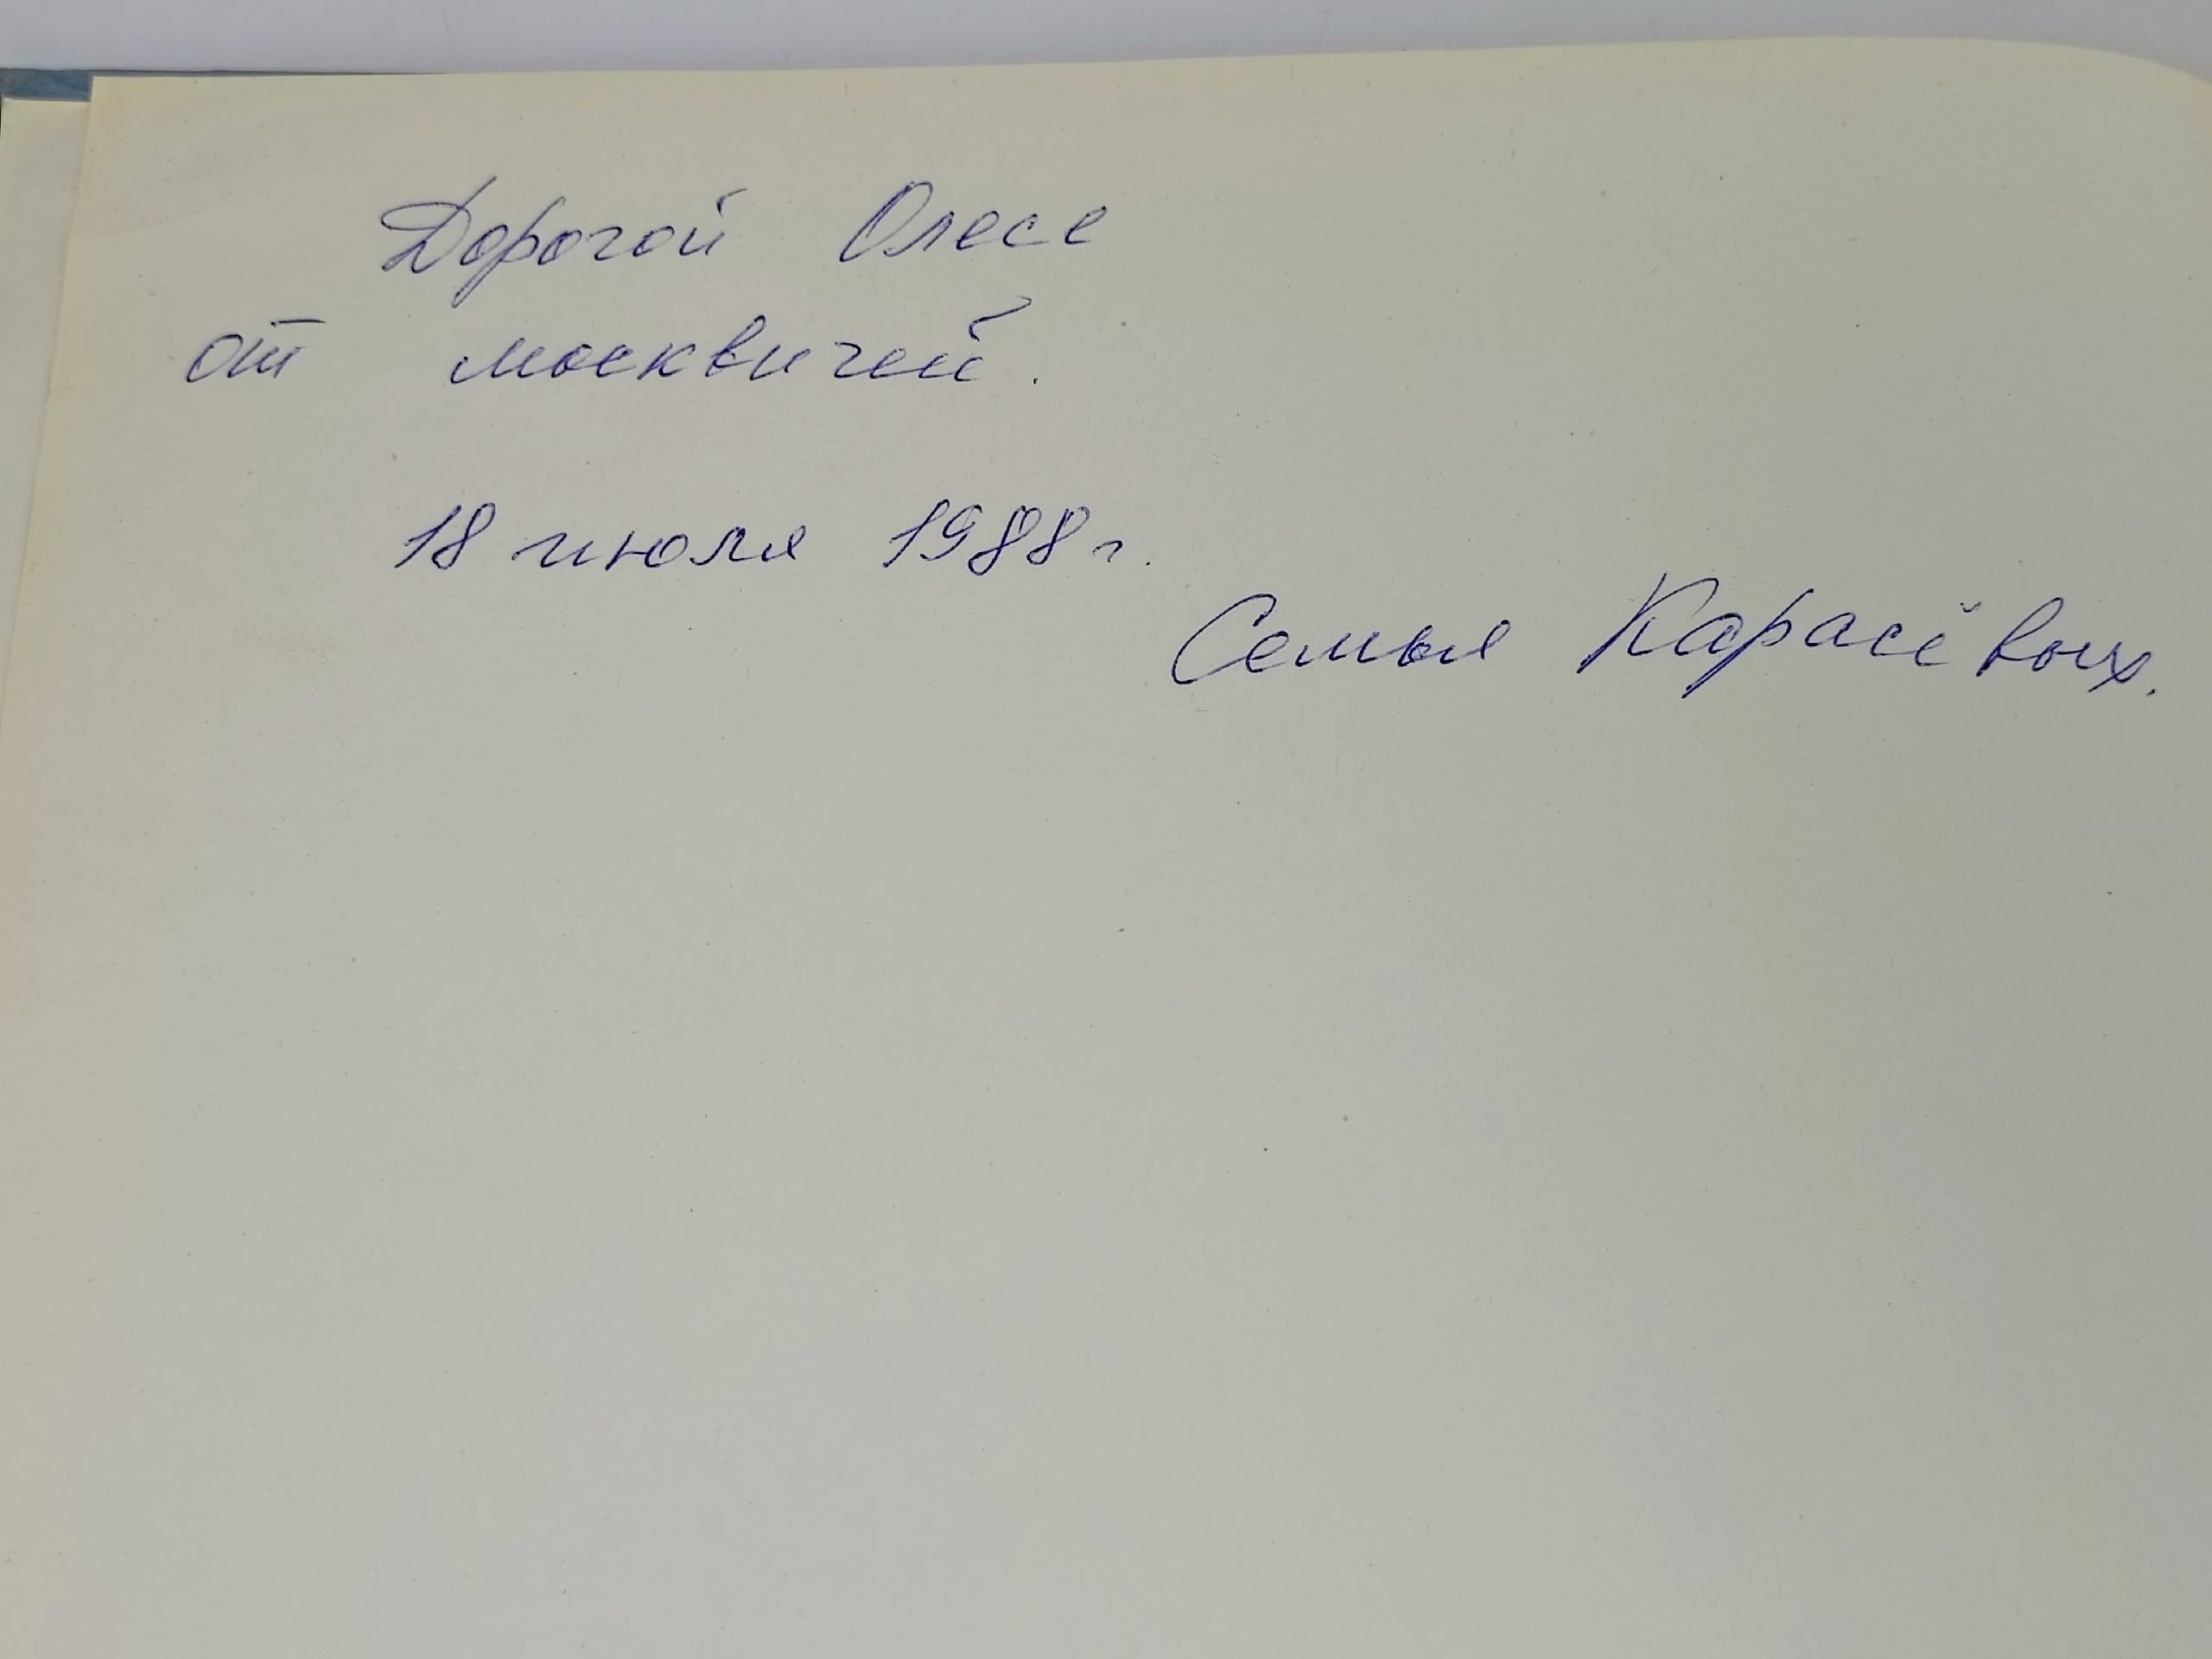 Дорогой Олесе
от москвичей.
18 июля 1988 г.
Семья Карасёвых.